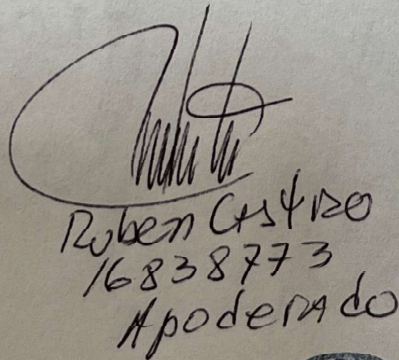 Ruben Castro
16838773
Apoderado